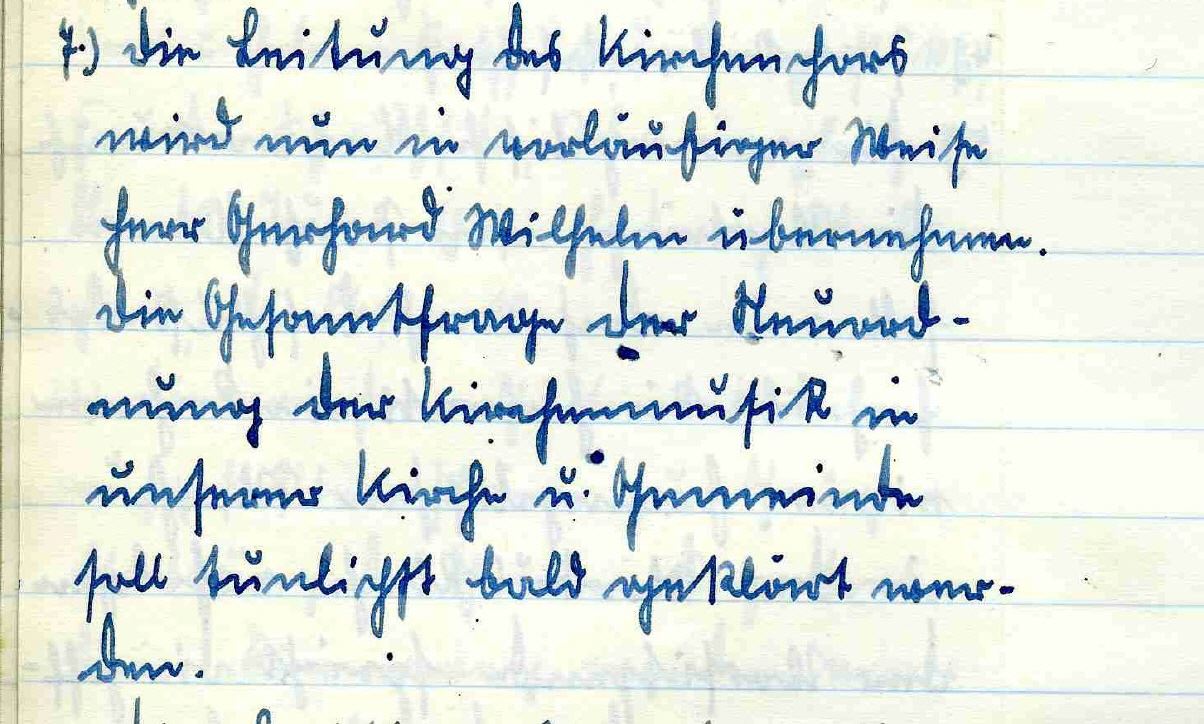 7.) Die Leitung des Kirchenchors
wird nun in vorläufiger Weise
Herr Gerhard Wilhelm übernehmen.
Die Gesamtfrage der Neuord-
nung der Kirchenmusik in
unserer Kirche u. Gemeinde
soll tunlichst bald geklärt wer-
den.